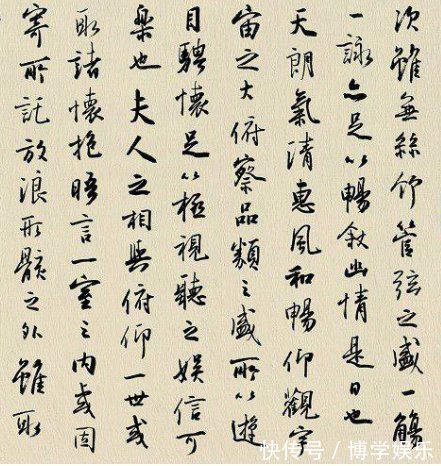 次雖無絲竹管弦之盛一觴
一詠亦足以暢敘幽情是日也
天朗氣清惠風和暢仰觀宇
宙之大俯察品類之盛所以遊
目騁懷足以極視聽之娛信可
樂也夫人之相與俯仰一世或
取諸懷抱悟言一室之內或因
寄所託放浪形骸之外雖取
快传号 / 博学娱乐